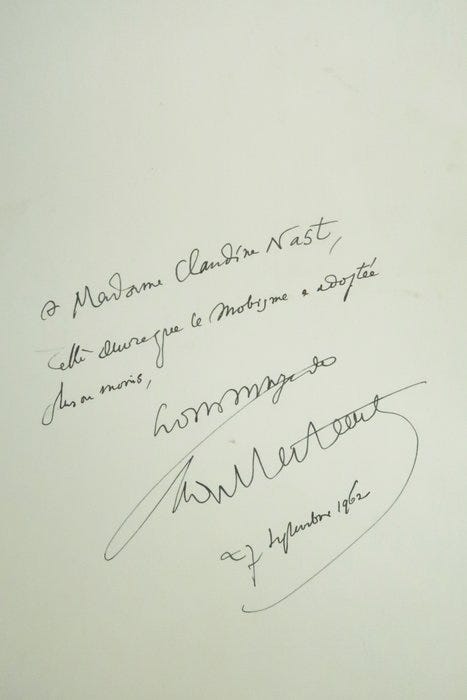 à Madame Claudine Nast,
cette œuvre que le Mobisme a adoptée
plus ou moins,
hommage de
27 septembre 1962